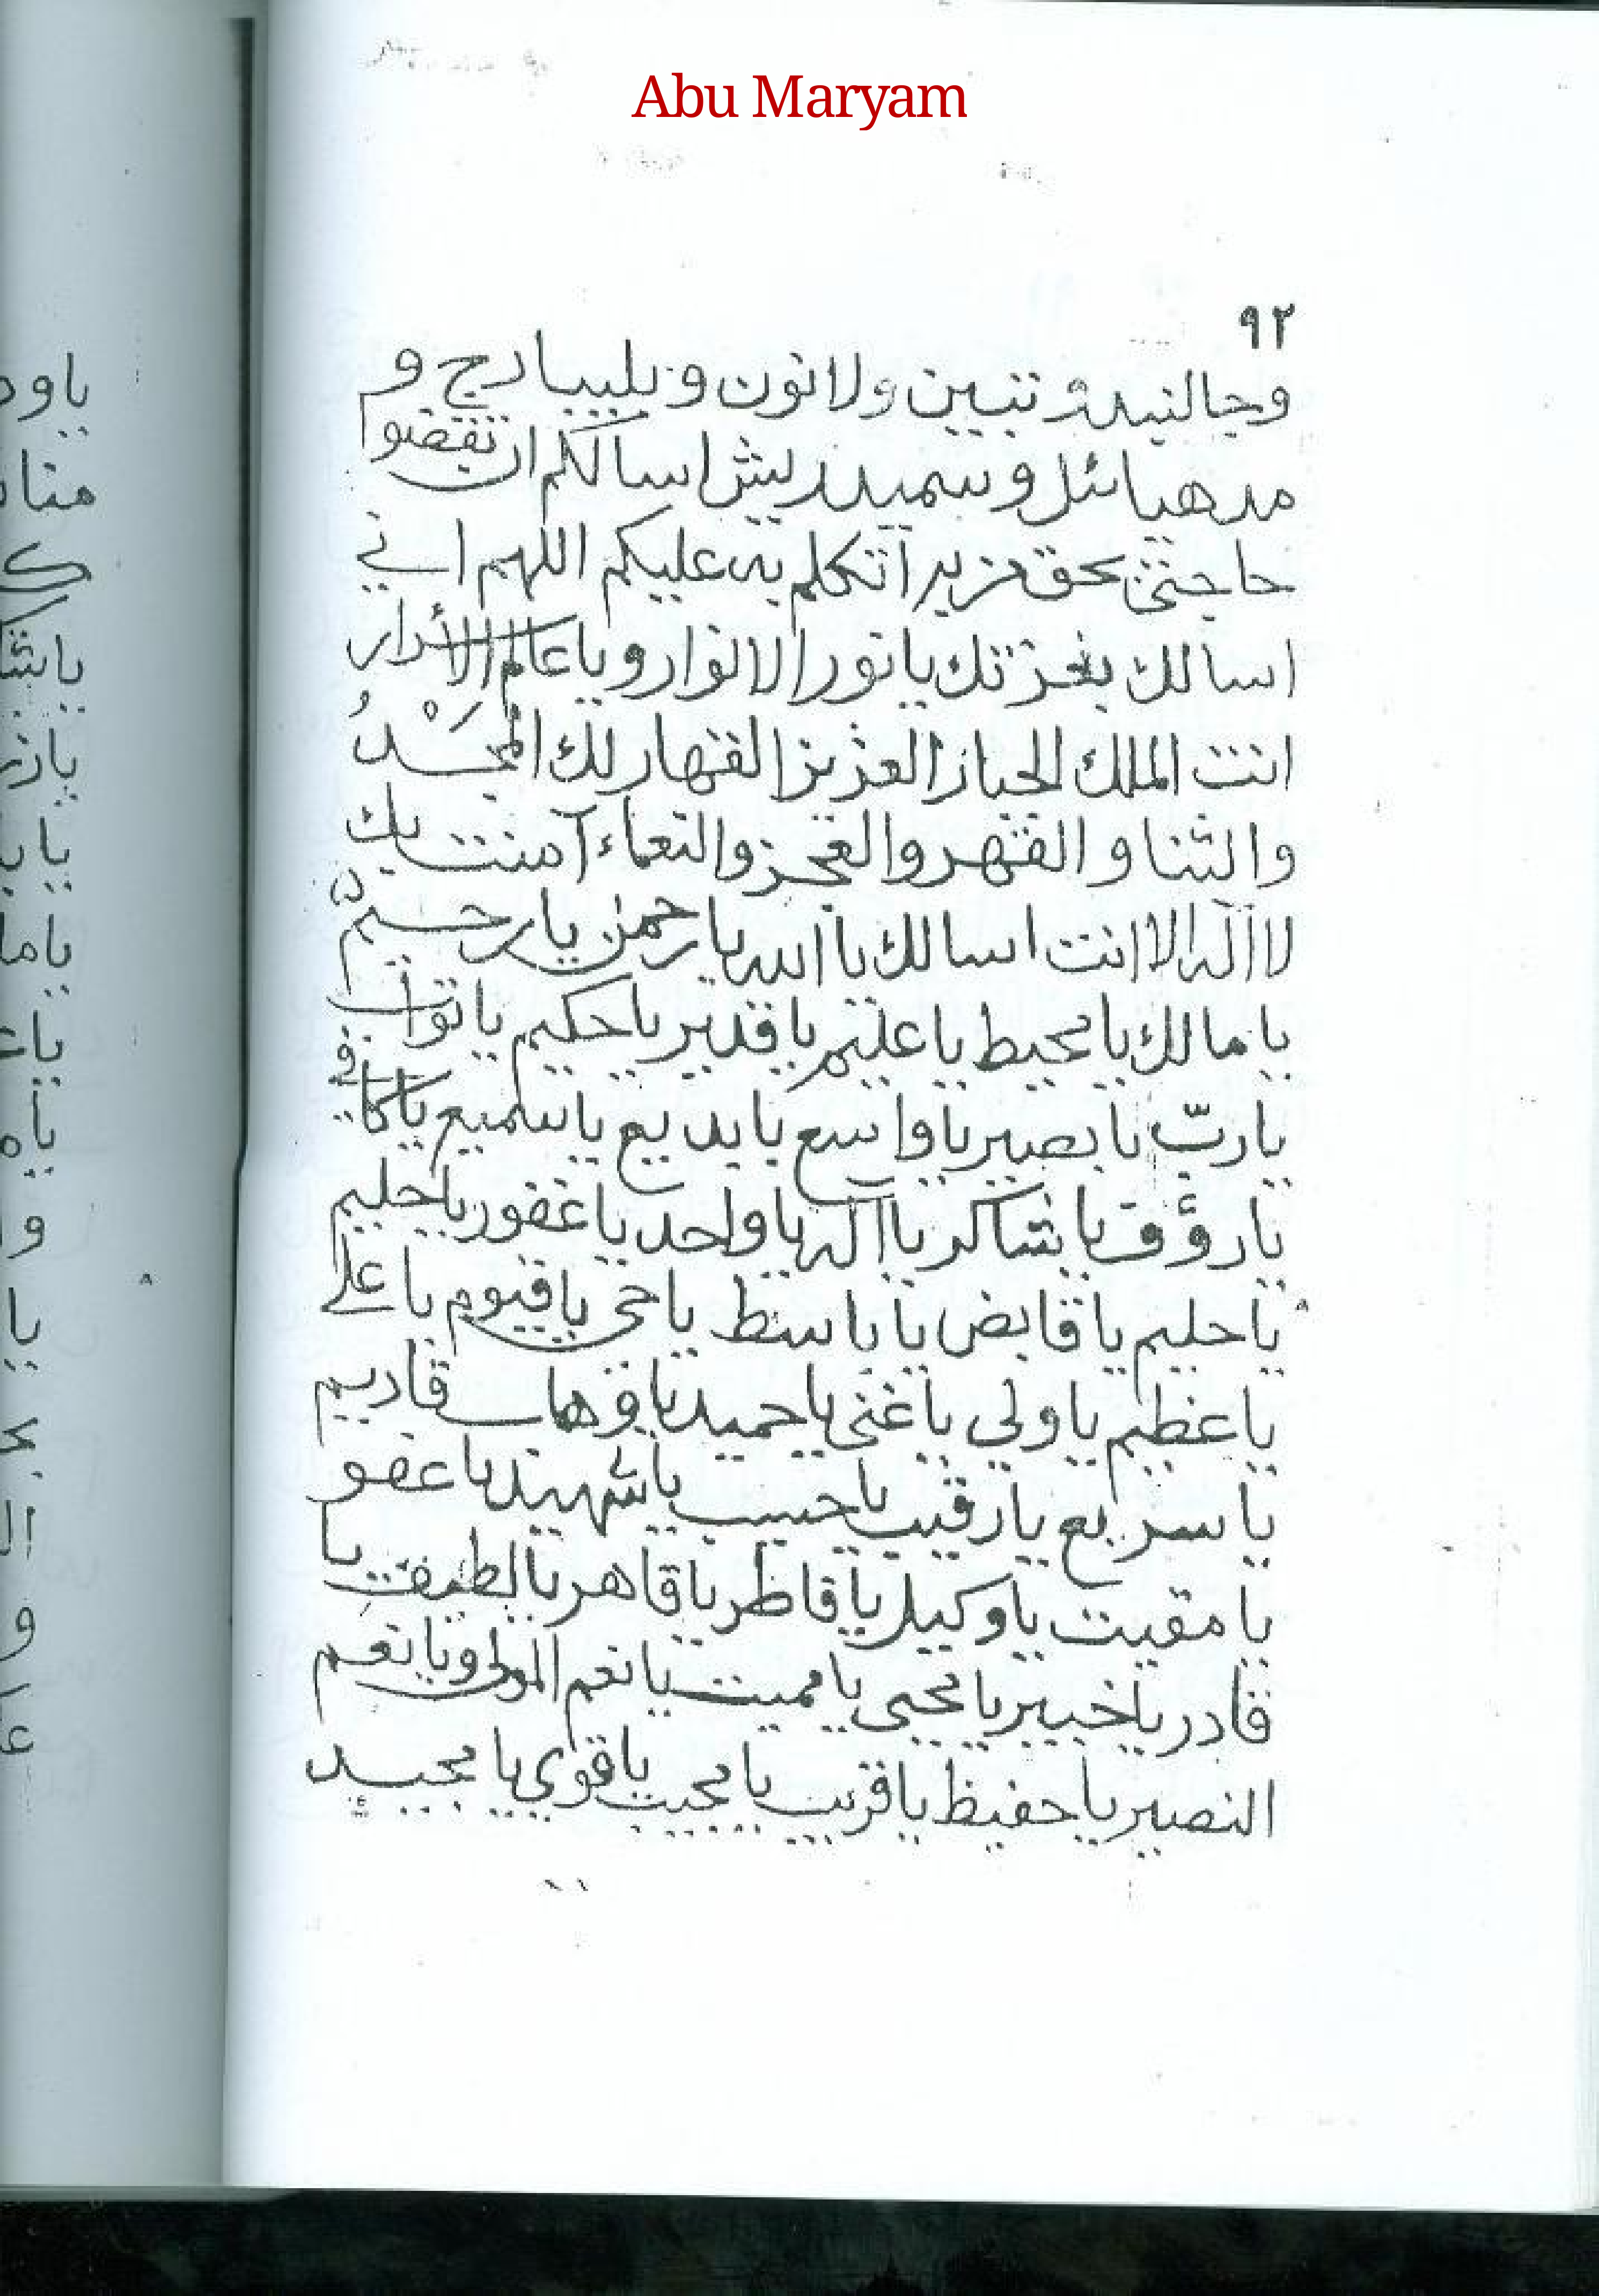 Abu Maryam
٩٢
وجالنيدة تنبين ولانون و يلييادج و
مدهيائل و سميدريش اسالكم ان تقضوا
حاجتي بحق عزير آتكلم به عليكم اللهم اني
اسالك بعزتك يا نور الانوار و يا عالم الأسرار
انت الملك الجبار العزيز القهار لك المجْدُ
والثنا و القهر والعجز والنعماء آمنت بك
لا اله الا انت اسالك يا الله يا رحمن يا رحيم
يا مالك يا محيط يا عليم يا قدير يا حكيم يا تواب
يا ربّ يا بصير يا واسع يا بديع يا سميع يا كافي
يا رؤف يا شاكر يا اله يا واحد يا غفور يا حليم
يا حليم يا قابض يا باسط يا حي يا قيوم يا علي
يا عظيم يا ولي يا غني يا حميد يا وهاب قاديم
يا سريع يا رقيب يا حسيب يا شهيد يا عفو
يا مقيت يا وكيل يا فاطر يا قاهر يا لطيف يا
قادر يا خبير يا محيي يا مميت يا نعم المولى ويا نعم
النصير يا حفيظ يا قريب يا مجيب يا قوي يا مجيد